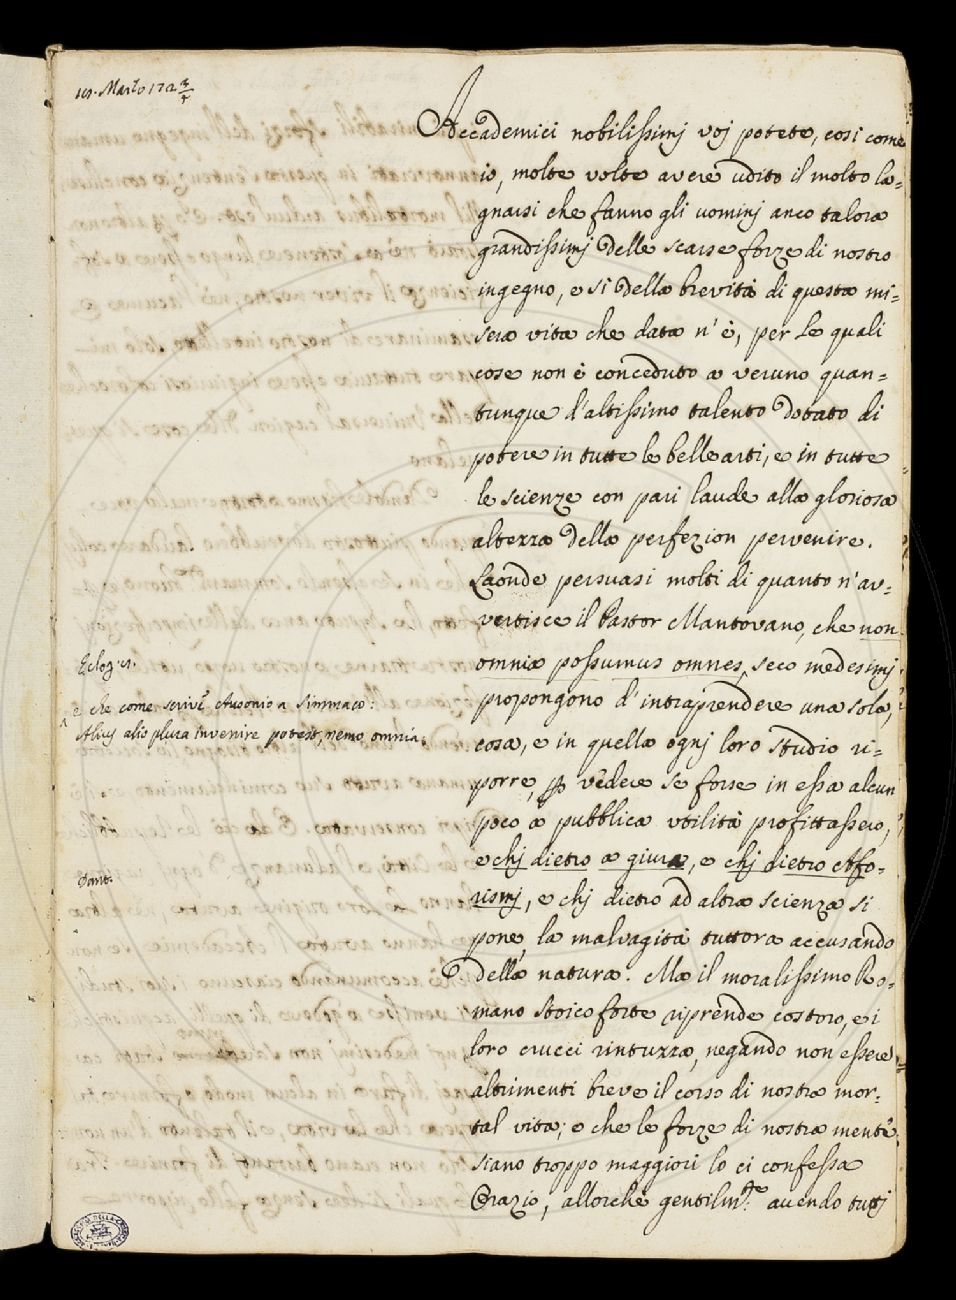 19. Marzo 172 3/4
Accademici nobilissimj voj potete, così come
io, molte volte avere udito il molto la=
gnarsi che fanno gli uominj anco talora
grandissimj delle scarse forze di nostro
ingegno, e si della brevità di questa mi=
sera vita che data n'è, per le quali
cose non è conceduto a veruno quan=
tunque d'altissimo talento dotato di
potere in tutte le belle arti, e in tutte
le scienze con pari laude alla gloriosa
altezza della perfezion pervenire.
Laonde persuasi molti di quanto n'av=
vertisce il Pastor Mantovano, che non
Eclog.
omnia possumus omnes, seco medesimj
e che come scrive Ausonio a Simmaco:
Alius alio plura invenire potest, nemo omnia.
propongono d'intraprendere una sola
cosa, e in quella ognj loro studio ri=
porre, p vedere se forse in essa alcun
poco a pubblica utilità profittassero,
e chj dietro a giura, e chj dietro Afo=
Dant.
rismj, e chj dietro ad altra scienza si
pone, la malvagità tuttora accusando
della natura. Ma il moralissimo Ro=
mano Stoico forte riprende costoro, e i
loro crucci rintuzza, negando non essere
altrimenti breve il corso di nostra mor=
tal vita; e che le forze di nostra mente
siano troppo maggiori lo ci confessa
Orazio, allorchè gentilm.te avendo tuttj